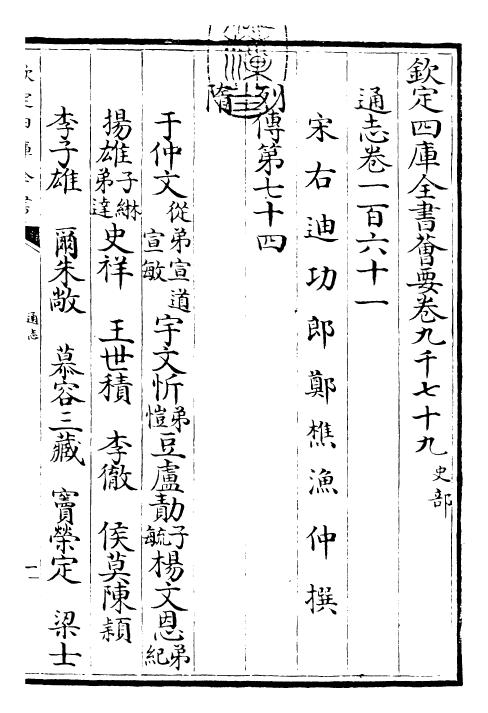 欽定四庫全書薈要卷九千七十九 史部
通志卷一百六十一
宋右迪功郎鄭樵漁仲撰
列傳第七十四
隋
于仲文 從弟宣道 宣敏 宇文忻 弟愷 豆盧勣 子毓 楊文恩 弟紀
揚雄 弟達 子綝 史祥 王世積 李徹 侯莫陳穎
李子雄 爾朱敞 慕容三藏 竇榮定 梁士
通志